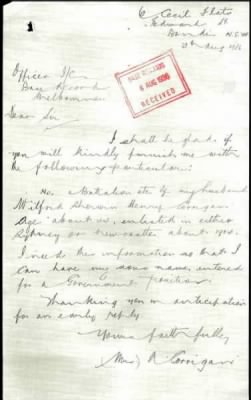 6 Cecil Flats
Edward St
Bondi N.S.W.
Aug
Officer I/C
Base Records
Melbourne
BASE RECORDS
6 AUG 1936
RECEIVED
Dear Sir
I shall be glad if
you will kindly furnish me with
the following particulars:
No. Battalion etc of my husband
Wilfred Henry Corrigan
Age about enlisted in either
Sydney or Newcastle about 1915.
I need the information so that I
can have my sons name entered
for a Government position
Thanking you in anticipation
for an early reply
Yours faithfully
Mrs A Corrigan